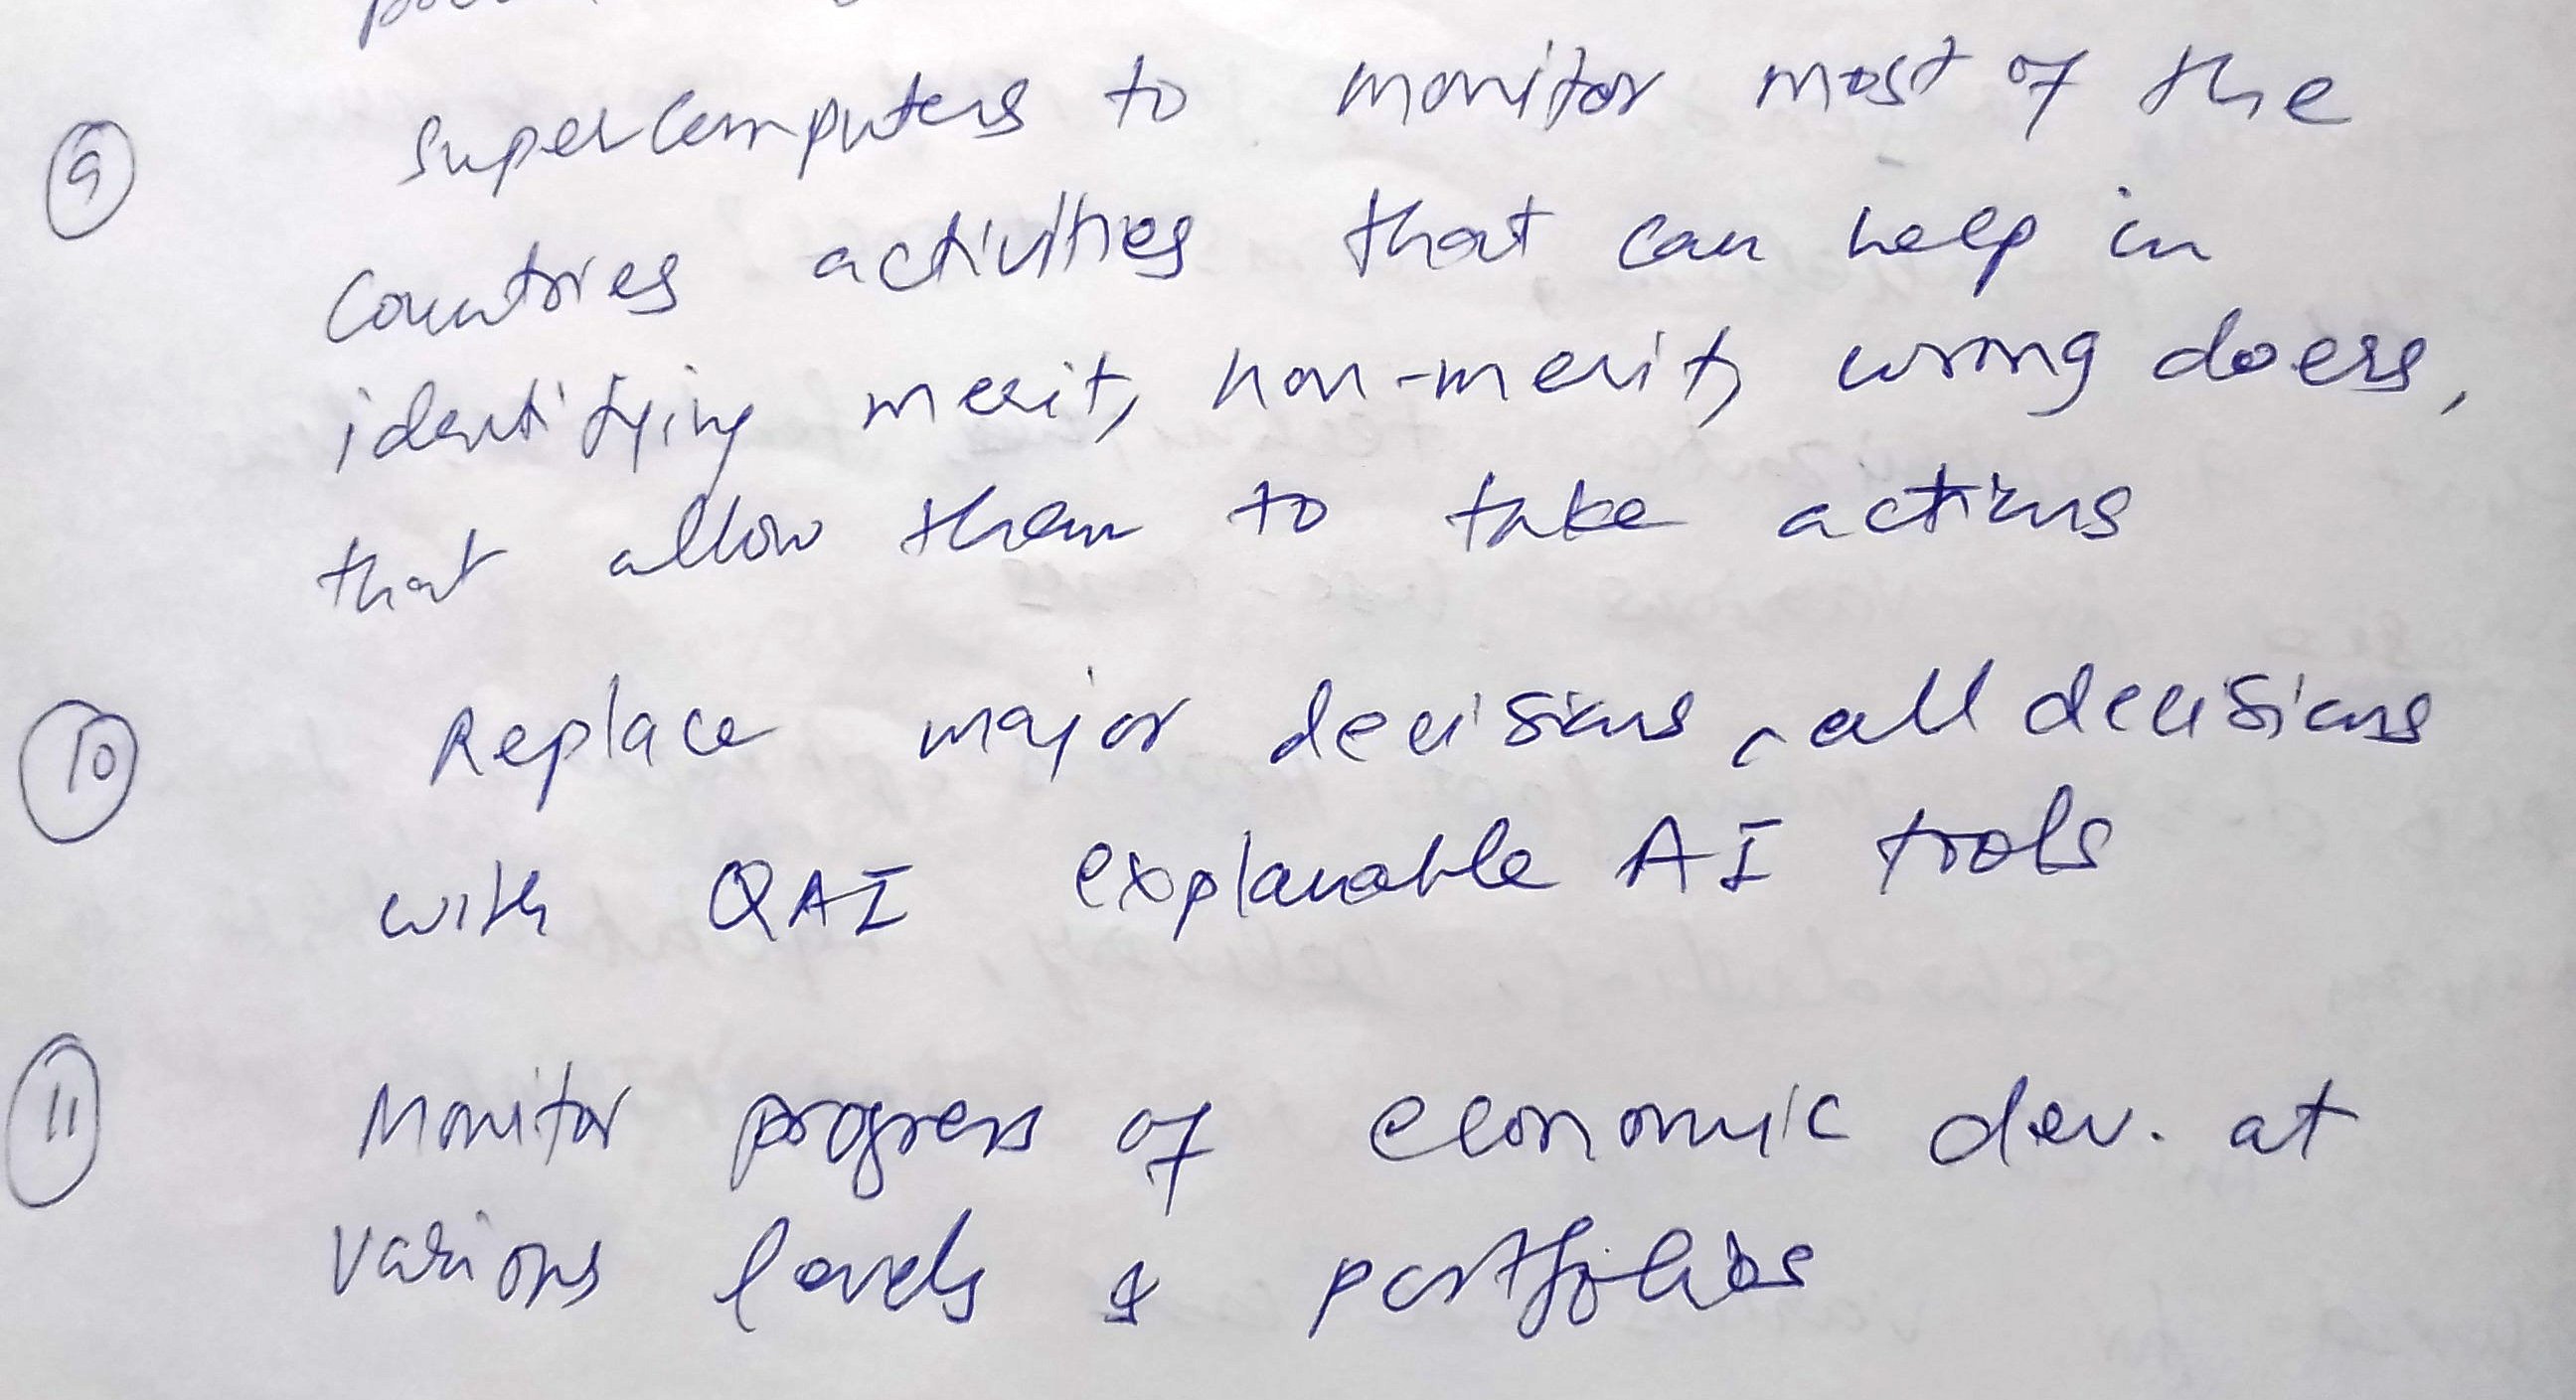 9 Supercomputers to monitor most of the
Countries activities that can help in
identifying merit, non-merit, wrong doers,
that allow them to take actions
10 Replace major decisions, all decisions
with QAI explanable AI tools
11 Monitor progress of economic dev. at
Various levels & portfolios